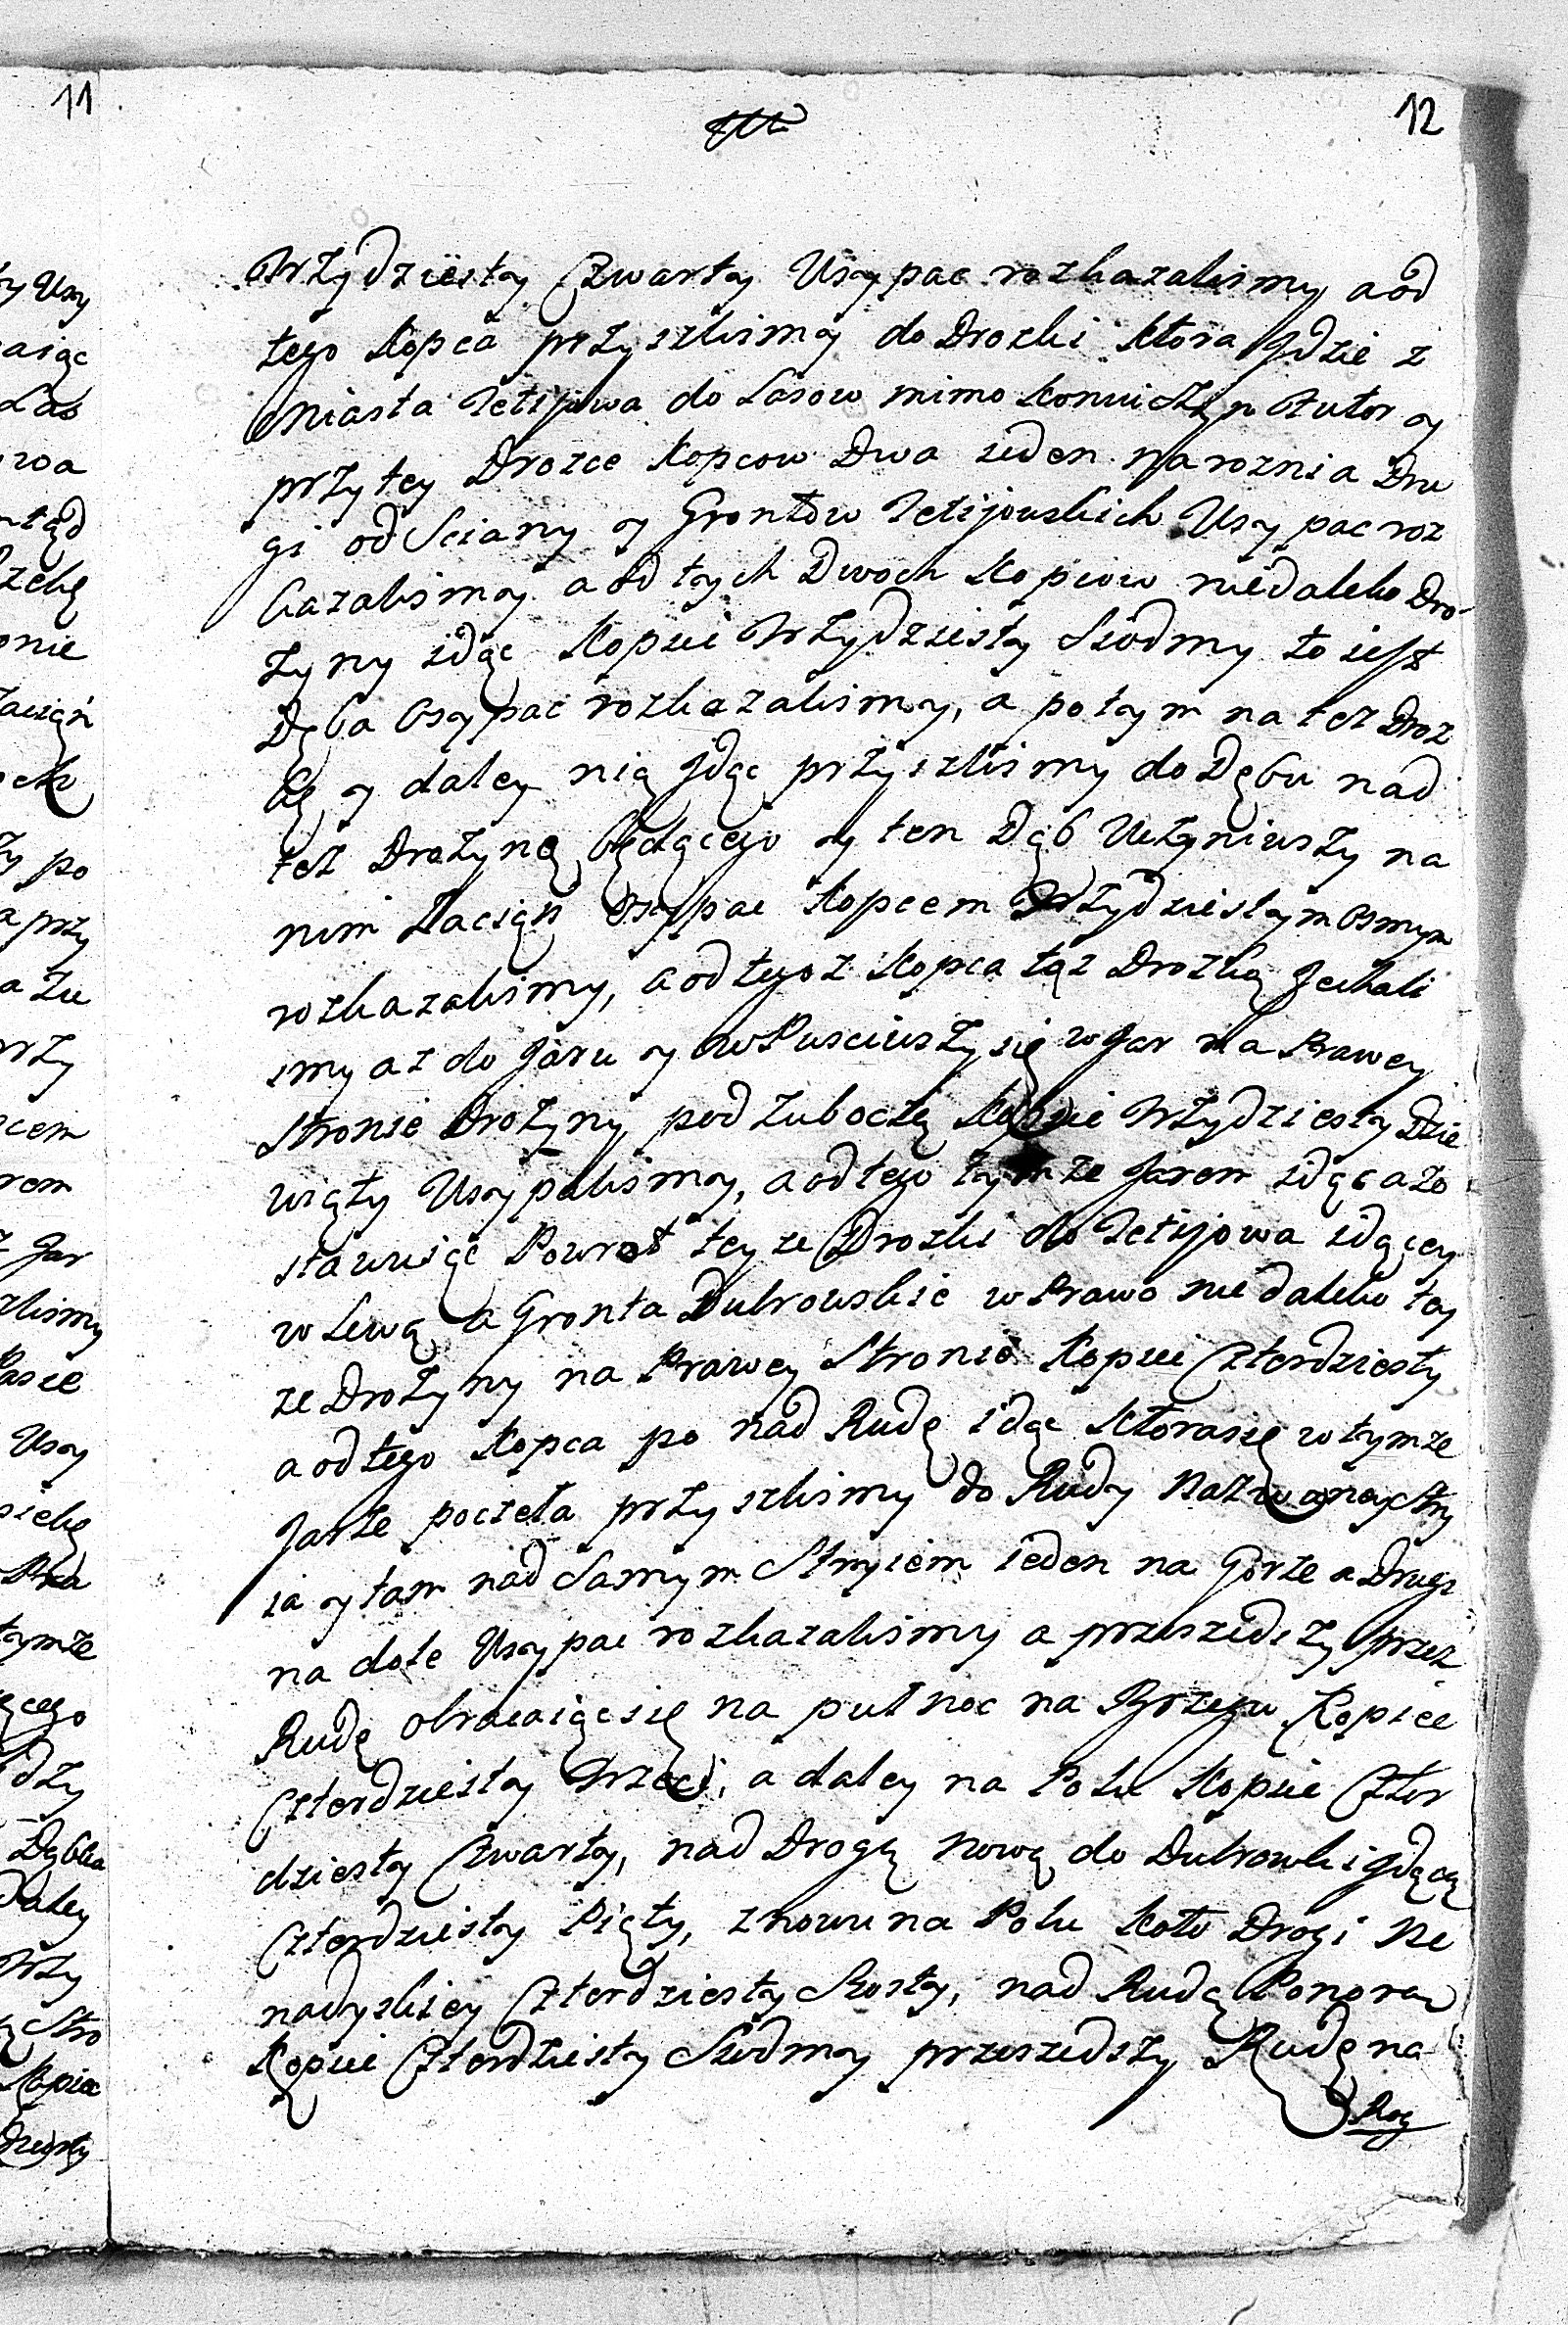 11
12
Trzydziesty Czwarty Usypac rozkazalismy a od
tego Kopca przyszlismy do Drozki ktora Jdzie z
Miasta Tetijowa do Lasow mimo
przy tey Drozce Kopcow Dwa ieden naroznia Dru
gi od Sciany y Grontow Tetijowskich Usypac roz
kazalismy a od tych Dwoch Kopcow niedaleko Dro
zyny idąc Kopiec Trzydziesty Siodmy to iest
Dęba Osypac rozkazalismy, a potym na tęz Droz
kę y daley nią Jdąc przyszlismy do Dębu nad
tęz Drozyną będącego y ten Dąb Uczyniwszy na
nim Zacięn Osypac Kopcem Trzydziestym osmym
rozkazalismy, a od tegoz Kopca tąz Drozką Jechali
smy az do Jaru y wPusciwszy się w Jar na Prawey
Stronie Drozyny pod Zuboczą Kopiec Trzydziesty Dzie
wiąty Usypalismy, a od tego tymze Jarem idąc a zo
stawuiąc Powrot teyze Drozki do Tetijowa idącey
w Lewą a Gronta Dubrowskie w Prawo niedaleko tey
ze Drozyny na Prawey Stronie Kopiec Czterdziesty
a od tego Kopca po nad Rudę idąc ktora się w tymze
Jarze poczeła przyszlismy do Rudy Nazwaney Stry
ia y tam nad Samym Stryiem ieden na Gorze a Drugi
na dole Usypac rozkazalismy a przeszedszy przez
Rudę obracaiąc się na pułnoc na Brzegu Kopiec
Czterdziesty Trzeci, a daley na Polu Kopiec Czter
dziesty Czwarty, nad Drogą Nową do Dubrowki Jdącą
Czterdziesty Piąty, znowu na Polu Koło Drogi Ne
nadyskiey Czterdziesty Szosty, nad Rudą Ponora
Kopiec Czterdziesty Siodmy przeszedszy Rudę na
Rog
ty Usy
aiąc
Las
onie
ack
zy po
a przy
rzy
cem
rem
z Jar
zlismy
Usy
tymze
ącego
dzy
Dębka
Daley
Trzy
Stro
Kopiec